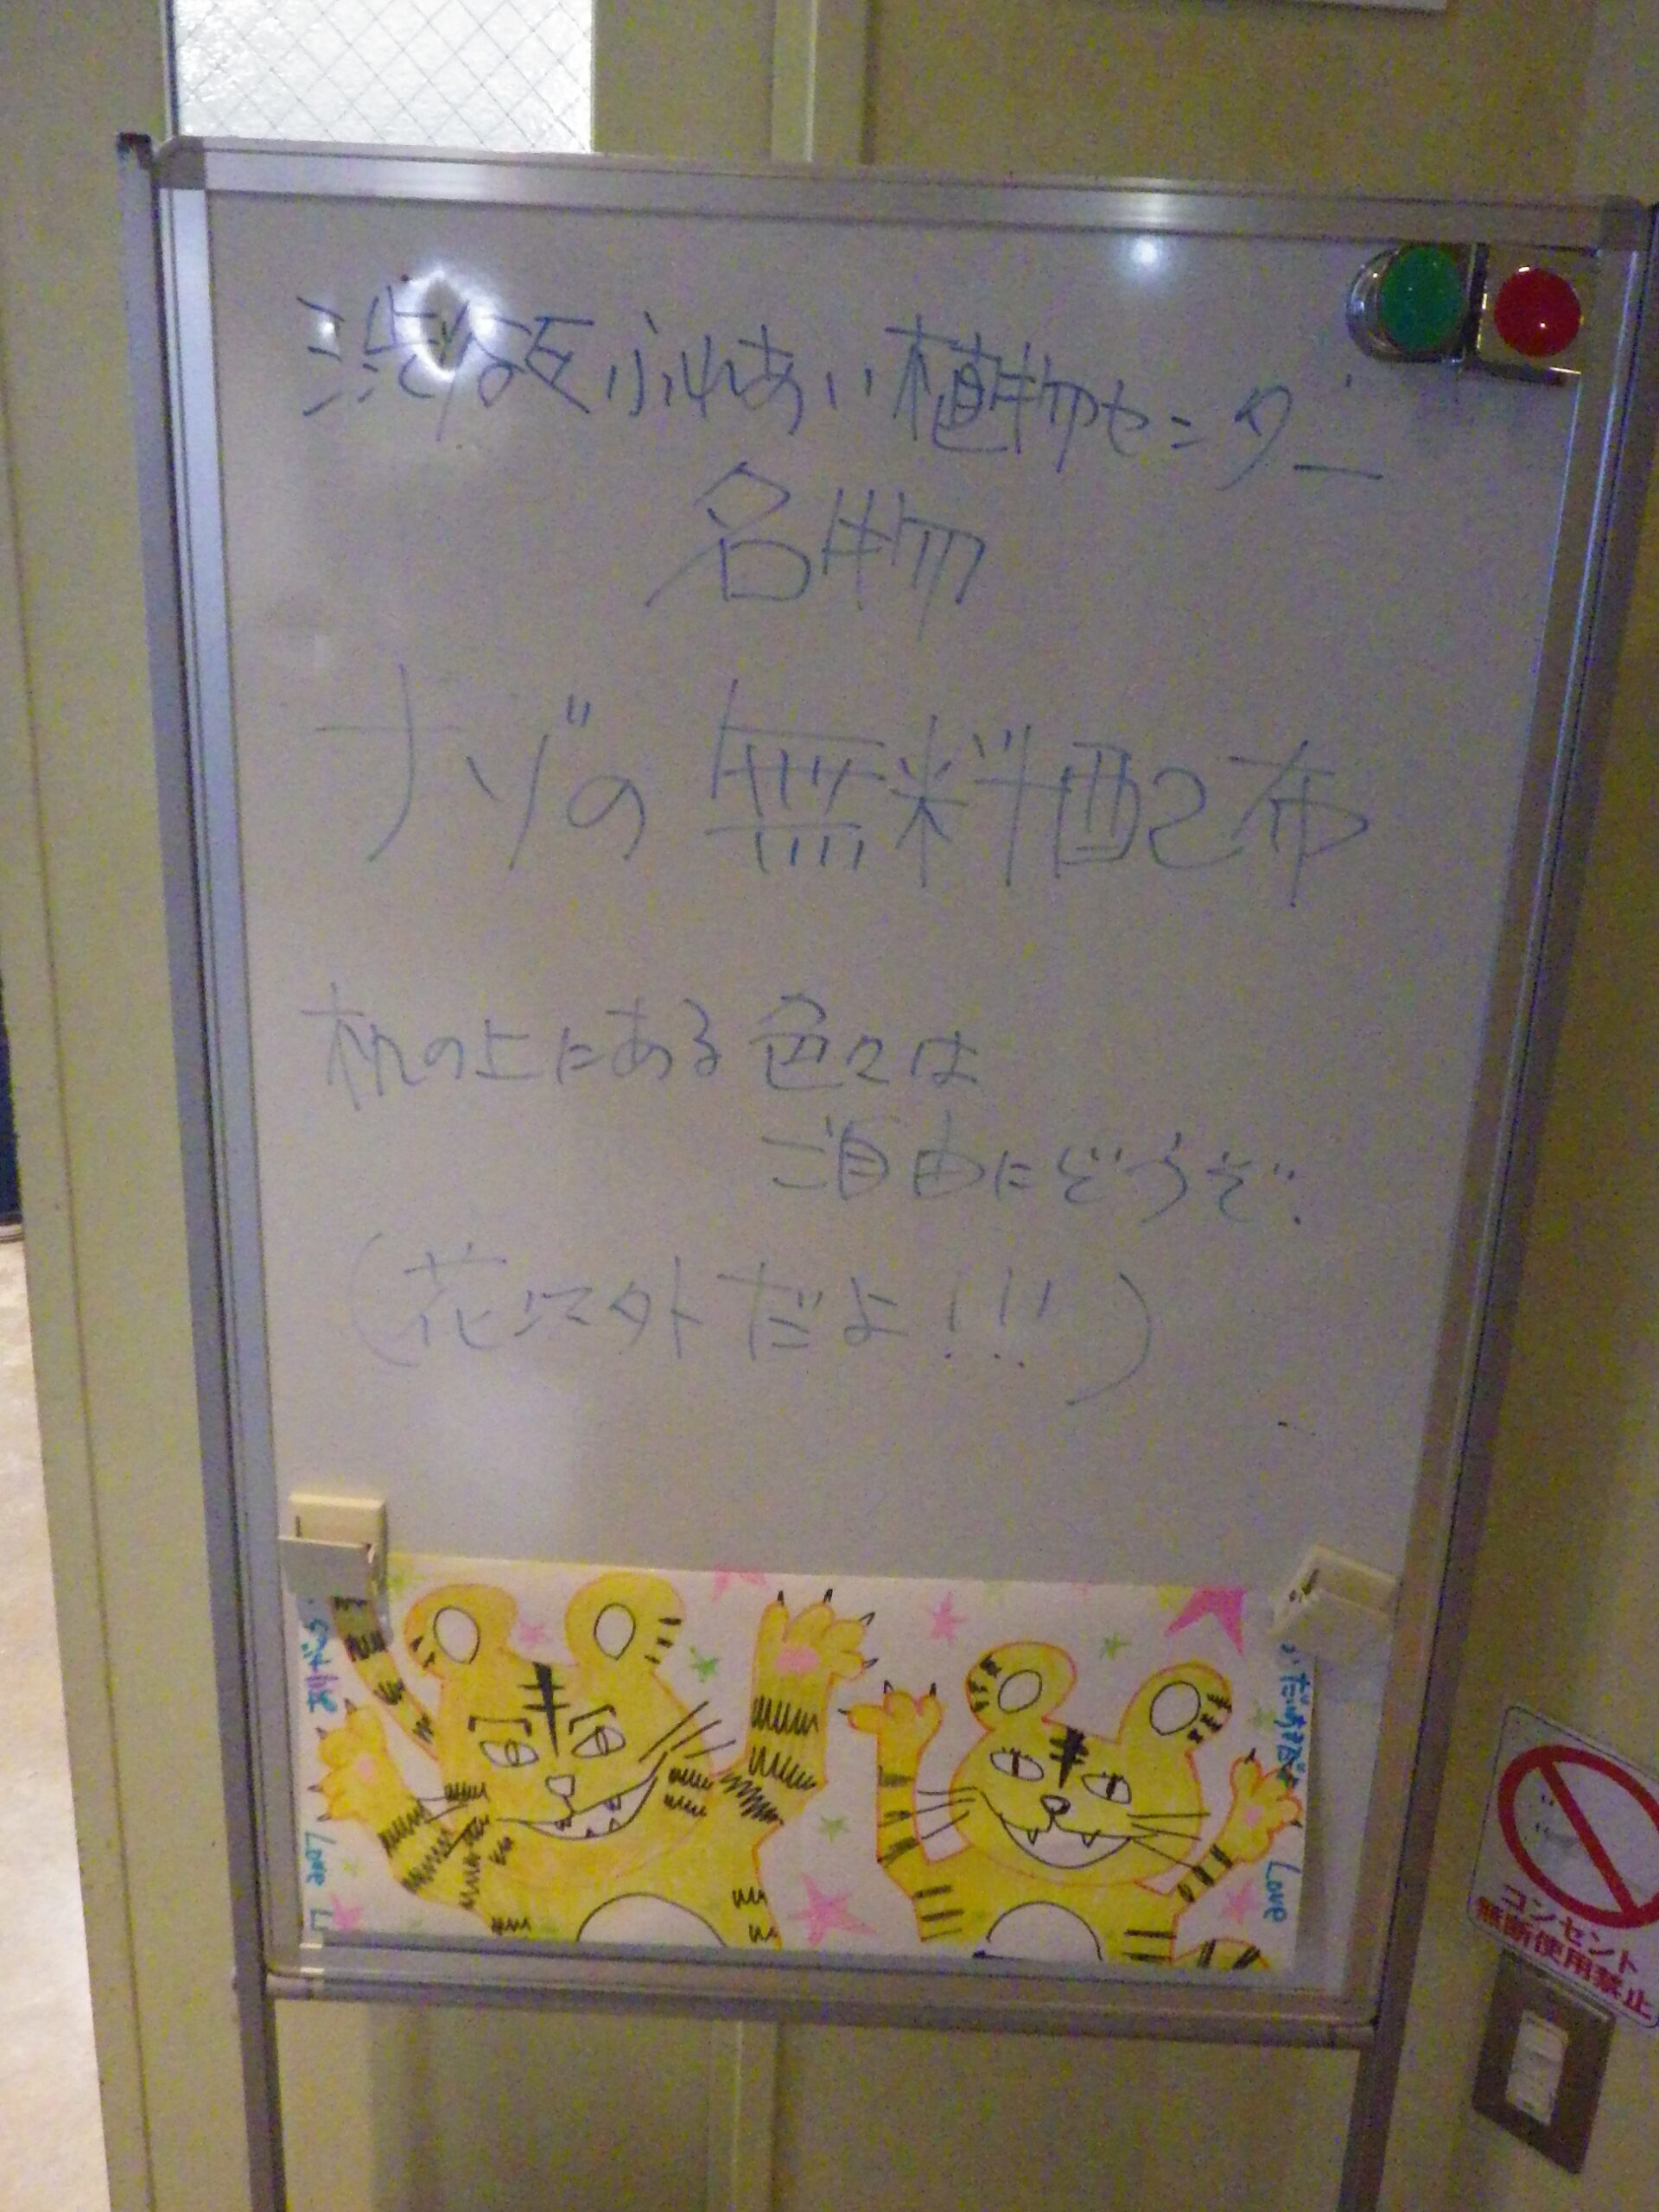 渋谷区ふれあい植物センター
名物
ナゾの無料配布
机の上にある色々は
ご自由にどうぞ.
(花以外だよ!!!)
Love
だいすきだよ
Love
コンセント
無断使用禁止